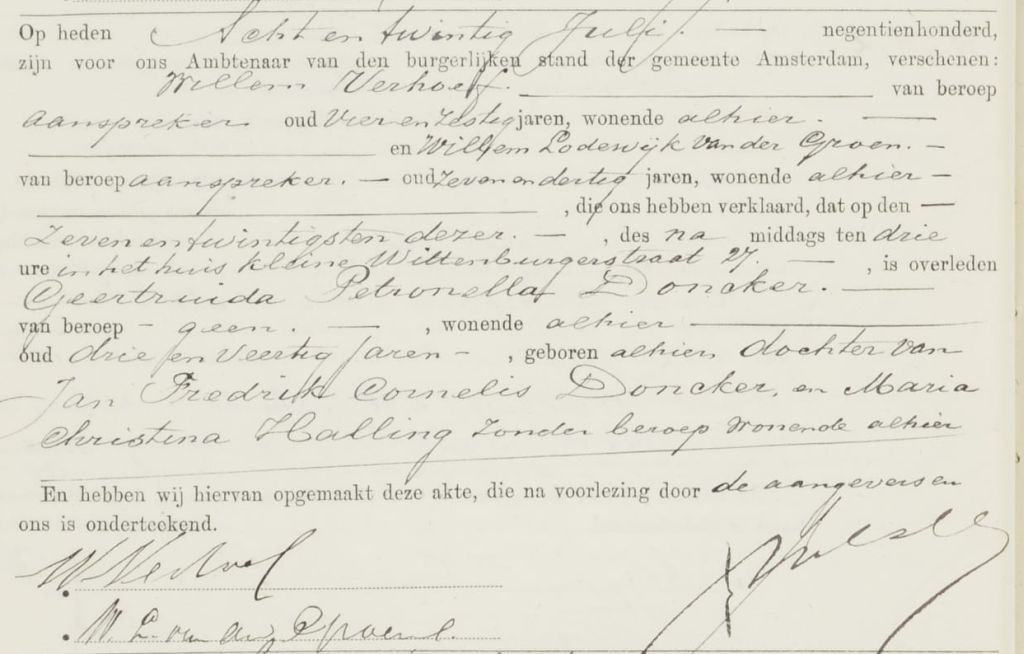 Op heden Acht en twintig Juli. — negentienhonderd,
zijn voor ons Ambtenaar van den burgerlijken stand der gemeente Amsterdam, verschenen:
Willem Verhoef. van beroep
aanspreker oud Vier en Zestig jaren, wonende alhier. —
en Willem Lodewijk van der Groen. —
van beroep aanspreker. — oud Zeven en dertig jaren, wonende alhier —
, die ons hebben verklaard, dat op den —
Zeven en twintigsten dezer. — , des na middags ten drie
ure in het huis Kleine Wittenburgerstraat 27. — , is overleden
Geertruida Petronella Doncker. —
van beroep – geen. — , wonende alhier —
oud drie en Veertig jaren – , geboren alhier, dochter van
Jan Fredrik Cornelis Doncker, en Maria
Christina Halling zonder beroep wonende alhier
En hebben wij hiervan opgemaakt deze akte, die na voorlezing door de aangevers en
ons is onderteekend.
W. Verhoef
W. L. van der Groen